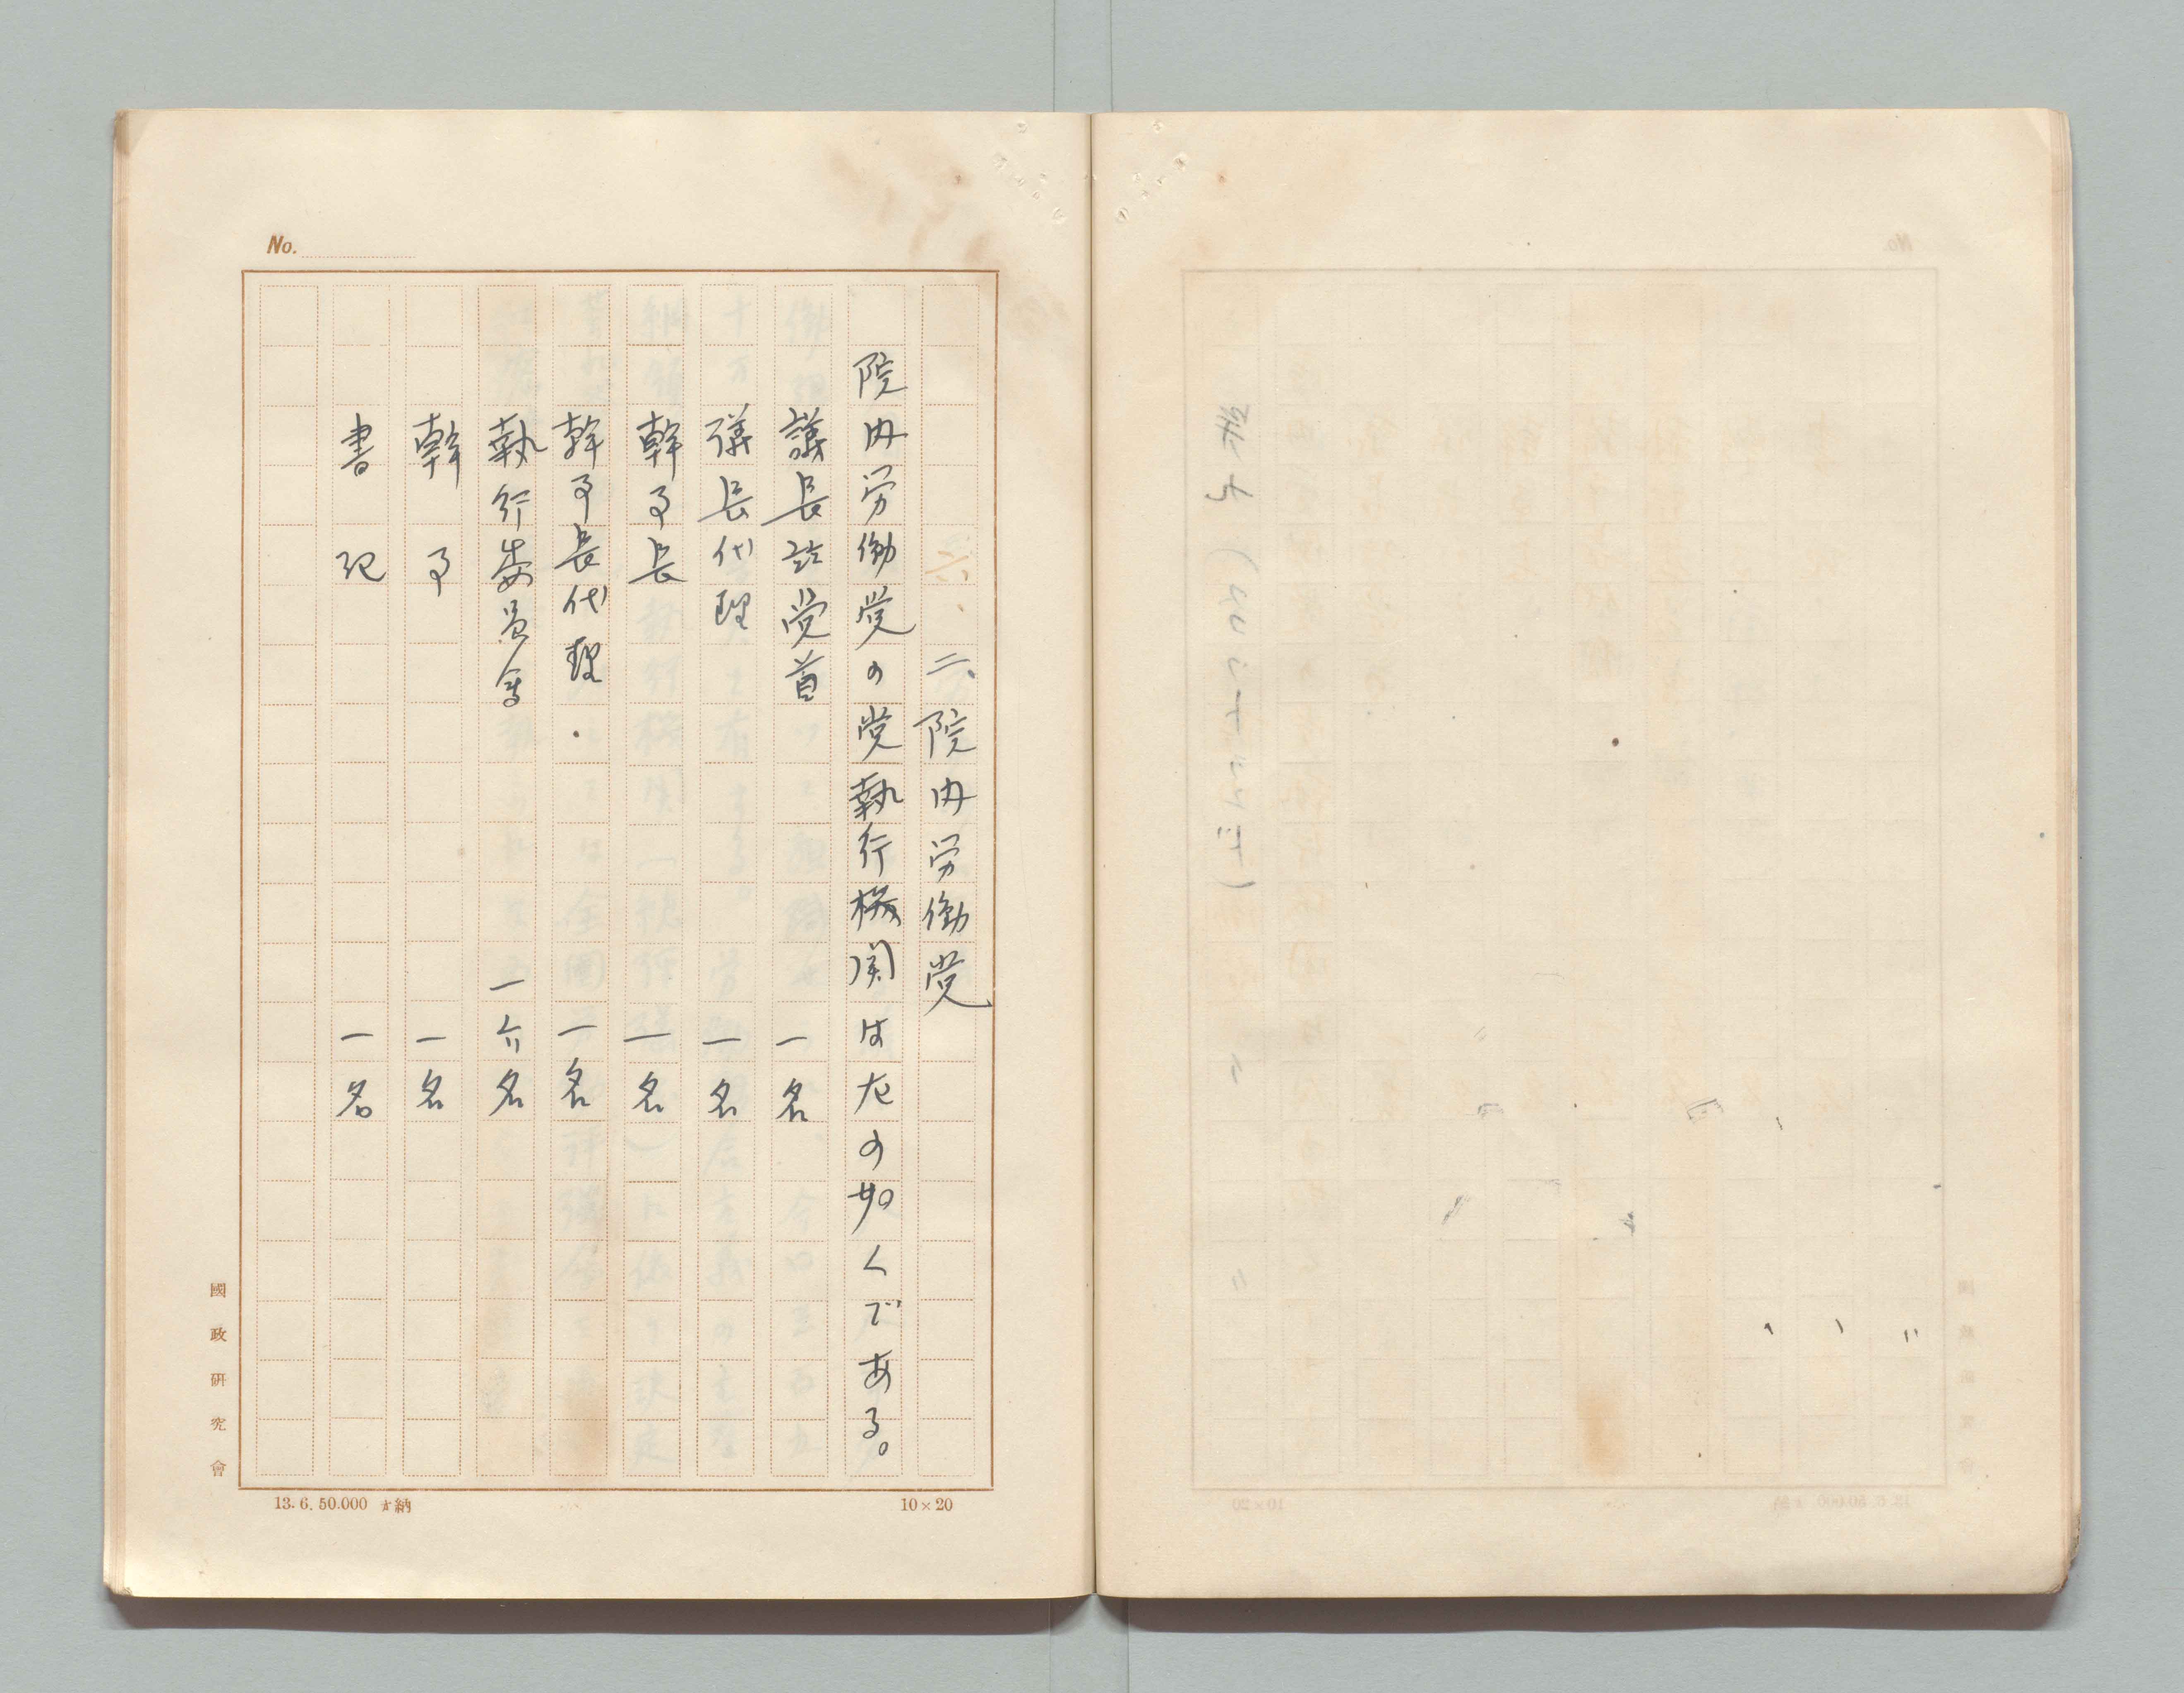 No.
二、院内労働党
院内労働党の党執行機関は左の如くである。
議長兼党首 一名
議長代理 一名
幹事長 一名
幹事長代理 一名
執行委員会 一六名
幹事 一名
書記 一名
國政研究會
13.6.50.000 納
10×20